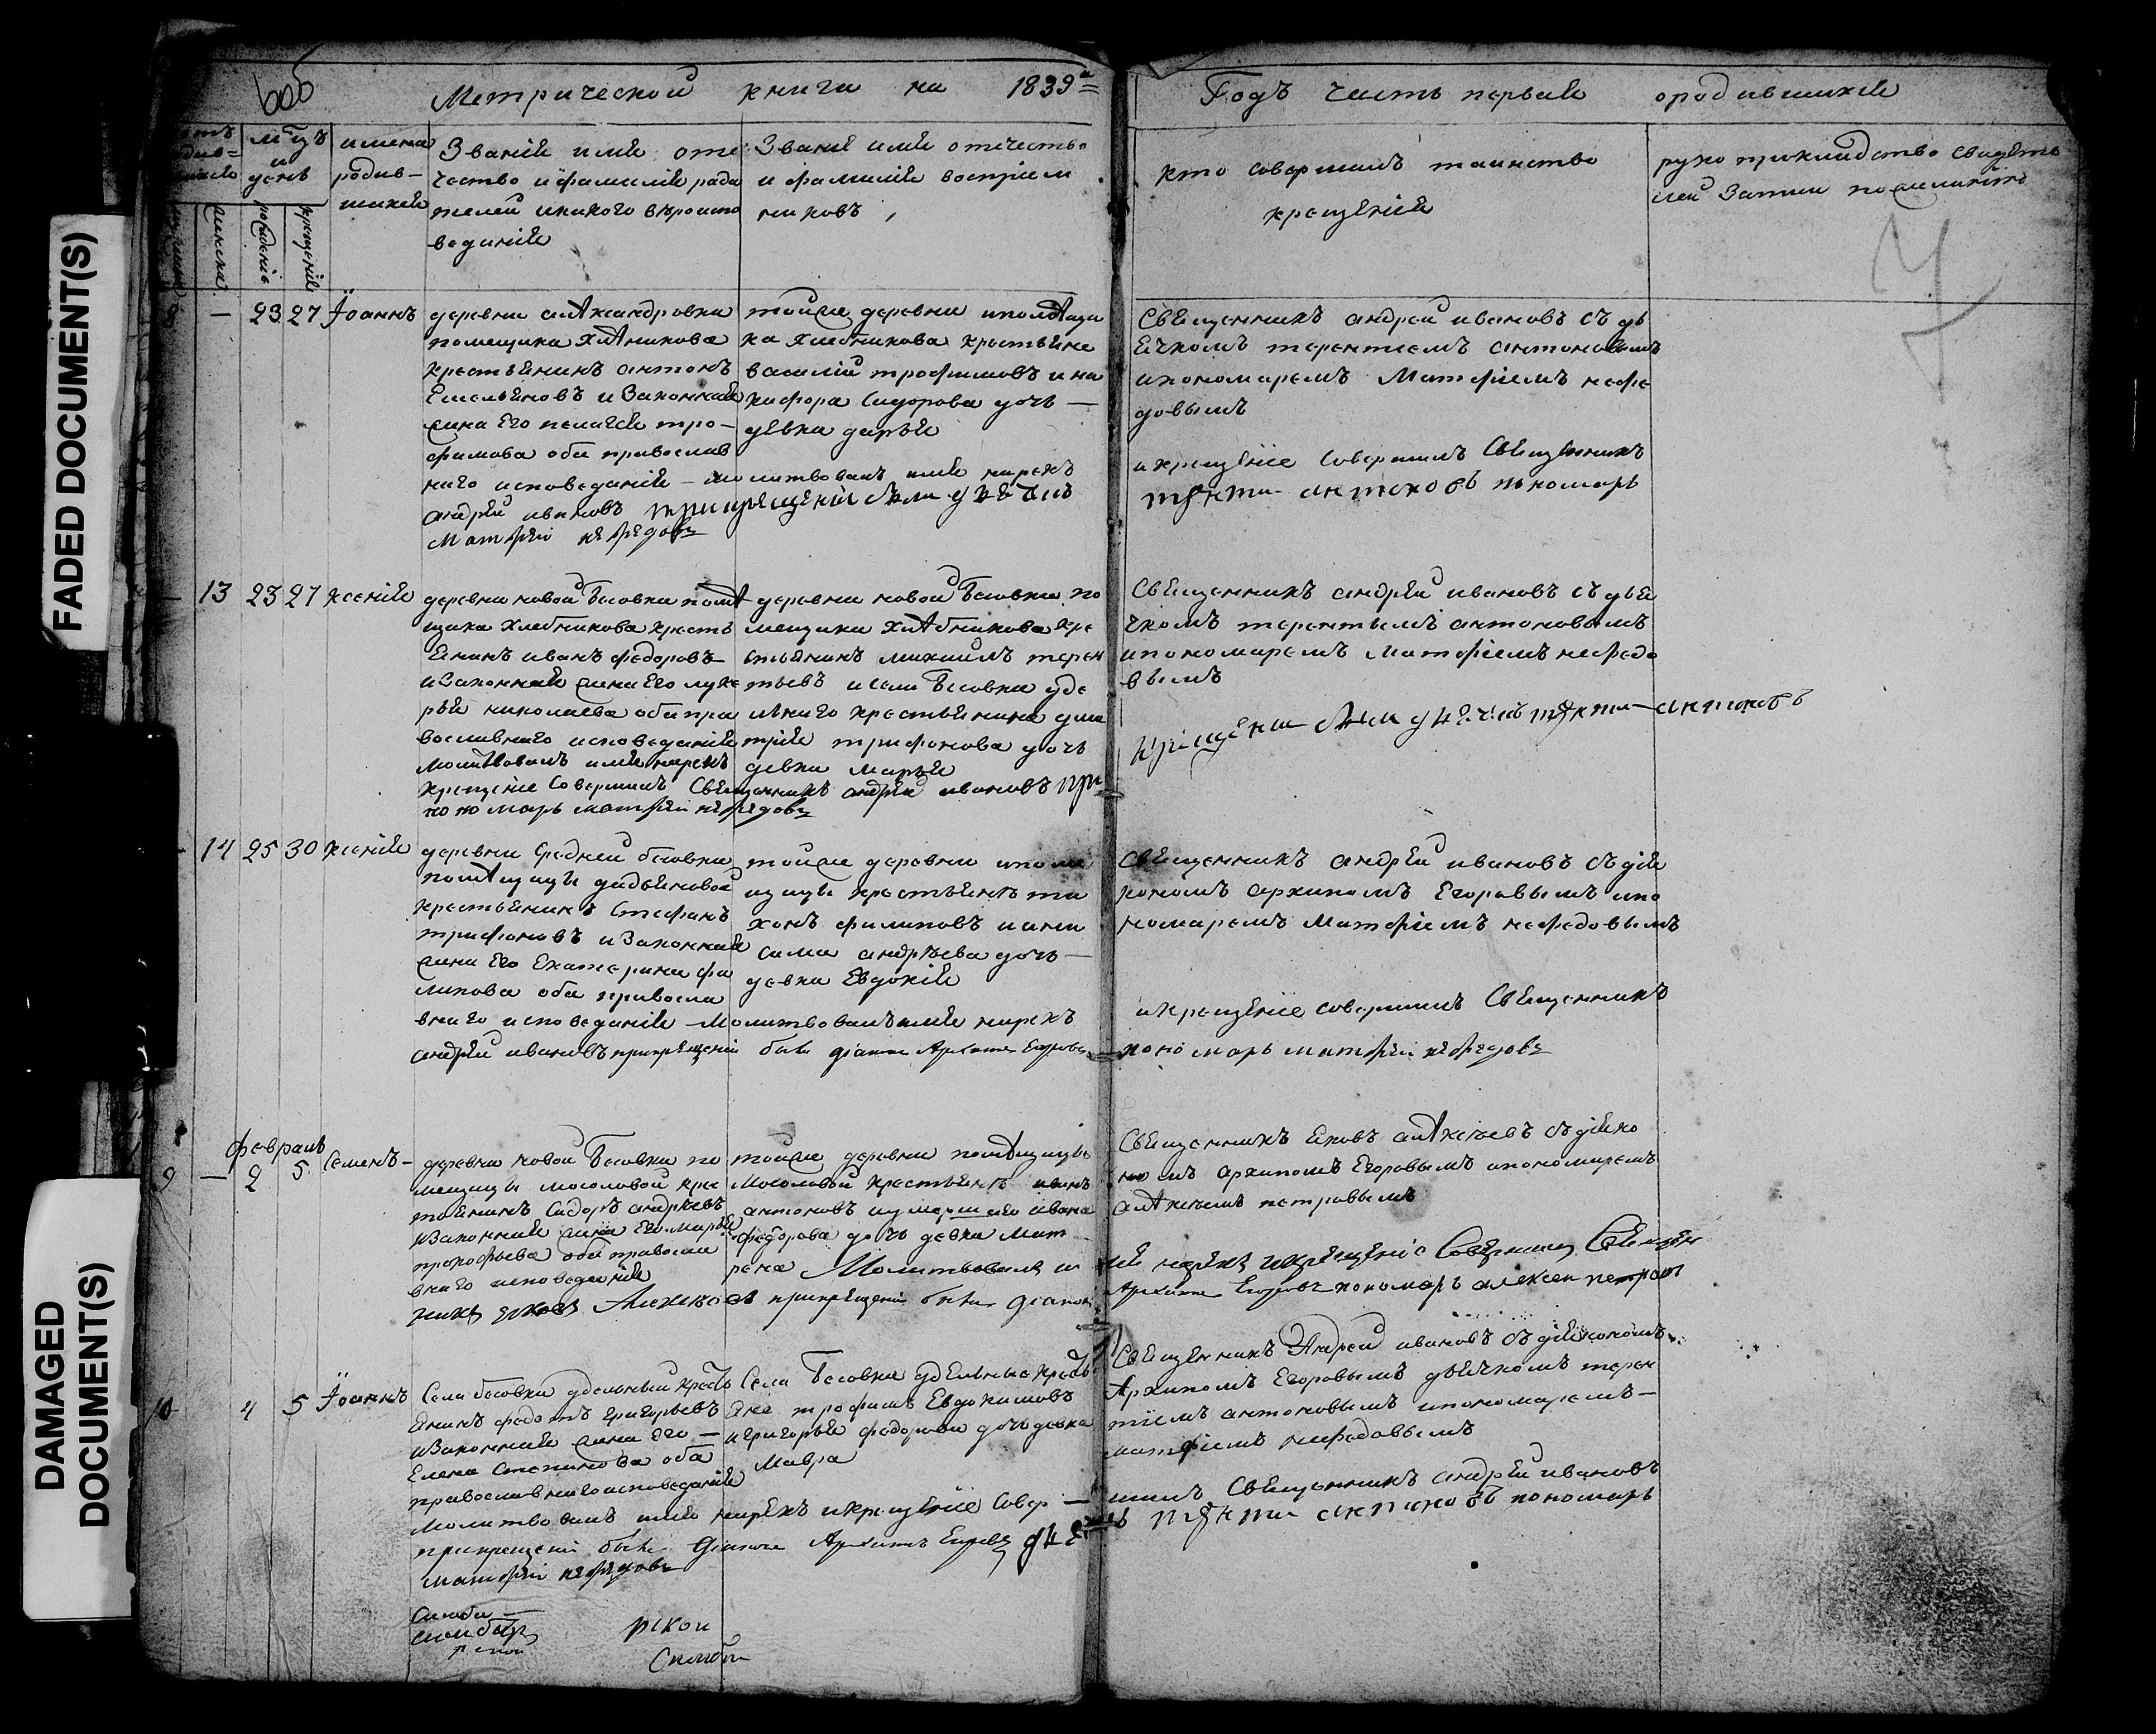 FADED DOCUMENT(S)
DAMAGED
DOCUMENT(S)
Метрической книги на 1839
Годъ часть первая о родившихся
мцъ
и
день
имена
родив-
шихся
Званiе имя оте
чество и фамилiя роди
телей и какого вѣроиспо
веданiя
Званiе имя отечество
и фамилiя воспрiем
никовъ
кто совершилъ таинство
крещенiя
рукоприкладство свидете
лей записи по желанiю
рожденiе
крещенiе
– 23 27 Іоаннъ
деревни алѣксандровки
помещика Хлѣбникова
крестьянинъ антонъ
Емельяновъ и Законная
жена Его пелагея тро-
фимова оба православ
наго исповеданiя – молитвовалъ имя нарекъ
андрей ивановъ при крещенiи были дьячекъ
Матфей нефедовъ
тойже деревни и помѣщи
ка Хлебникова крестьяне
василiй трофимовъ и ни
кифора Сидорова дочь –
девка дарья
Священникъ андрей ивановъ съ дь
ячкомъ терентiемъ антоновымъ
и пономаремъ Матфiемъ нефе
довымъ
и крещенiе совершилъ Священникъ
антоновъ пономарь
13 23 27 ксенiя
деревни новой Бесовки помѣ
щика Хлебникова кресть
янинъ иванъ федоровъ
и Законная жена Его луке
рья николаева оба пра
вославнаго исповеданiя
молитвовалъ имя нарекъ
крещенiе Совершилъ Священникъ андрей ивановъ при
пономарь матфей нефедовъ
деревни новой Бесовки по
мещика Хлѣбникова кре
стьянинъ михаилъ терен
тьевъ и села Бесовки уде
льнаго крестьянина дми
трiя трифонова дочь
девка марья
Священникъ андрей ивановъ съ дья
чкомъ терентьемъ антоновымъ
и пономаремъ Матфiемъ нефедо
вымъ
крещенiи были дьячекъ антоновъ
14 25 30 ксенiя
деревни Средней бесовки
помѣщицы дадьяновой
крестьянинъ Стефанъ
трифоновъ и Законная
жена Его Екатерина фи
липова оба правосла
внаго исповеданiя – Молитвовалъ имя нарекъ
андрей ивановъ при крещенiи были дiаконъ Архипъ Егоровъ
тойже деревни и поме
щицы крестьянѣ ти
хонъ филиповъ и ани
сима андрѣева дочь –
девка Евдокiя
Священникъ андрей ивановъ съ дiя
кономъ архипомъ Егоровымъ и по
номаремъ Матфiемъ нефедовымъ
и крещенiе совершилъ Священникъ
пономарь матфей нефедовъ
февраль
9 – 2 5 Семенъ –
деревни новой Бесовки по
мещицы мосоловой кре
тьянинъ Сидоръ андрѣевъ
и Законная жена Его марья
прокофьева оба правосла
внаго исповеданiя
никъ яковъ Алексѣевъ при крещенiи были дiаконъ
тойже деревни помѣщицы
Мосоловой крестьянѣ иванъ
антоновъ и умершаго ивана
федорова дочь девка мат
рена Молитвовалъ и
Священникъ яковъ алѣксѣевъ съ дiяко
номъ архипомъ Егоровымъ и пономаремъ
алѣксѣемъ петровымъ
мя нарекъ и крещенiе Совершилъ Священ
Архипъ Егоровъ пономарь алексеи петровъ
10 4 5 Іоаннъ
Села бесовки удельный кресть
янинъ федотъ григорьевъ
и Законная жена его –
Елена Степанова оба
православнаго исповеданiя
Молитвовалъ имя нарекъ и крещенiе Совер –
при крещенiи были дiаконъ Архипъ Егоровъ дьячекъ
матфей нефедовъ
Села Бесовки удельные кресть
яне трофимъ Евдокимовъ
и григорья федорова дочь девка
Мавра
Священникъ Андрей ивановъ съ дiякономъ
Архипомъ Егоровымъ дьячкомъ терен
тiемъ антоновымъ и пономаремъ –
матфiемъ нефедовымъ
шилъ Священникъ андрей ивановъ
антоновъ пономарь